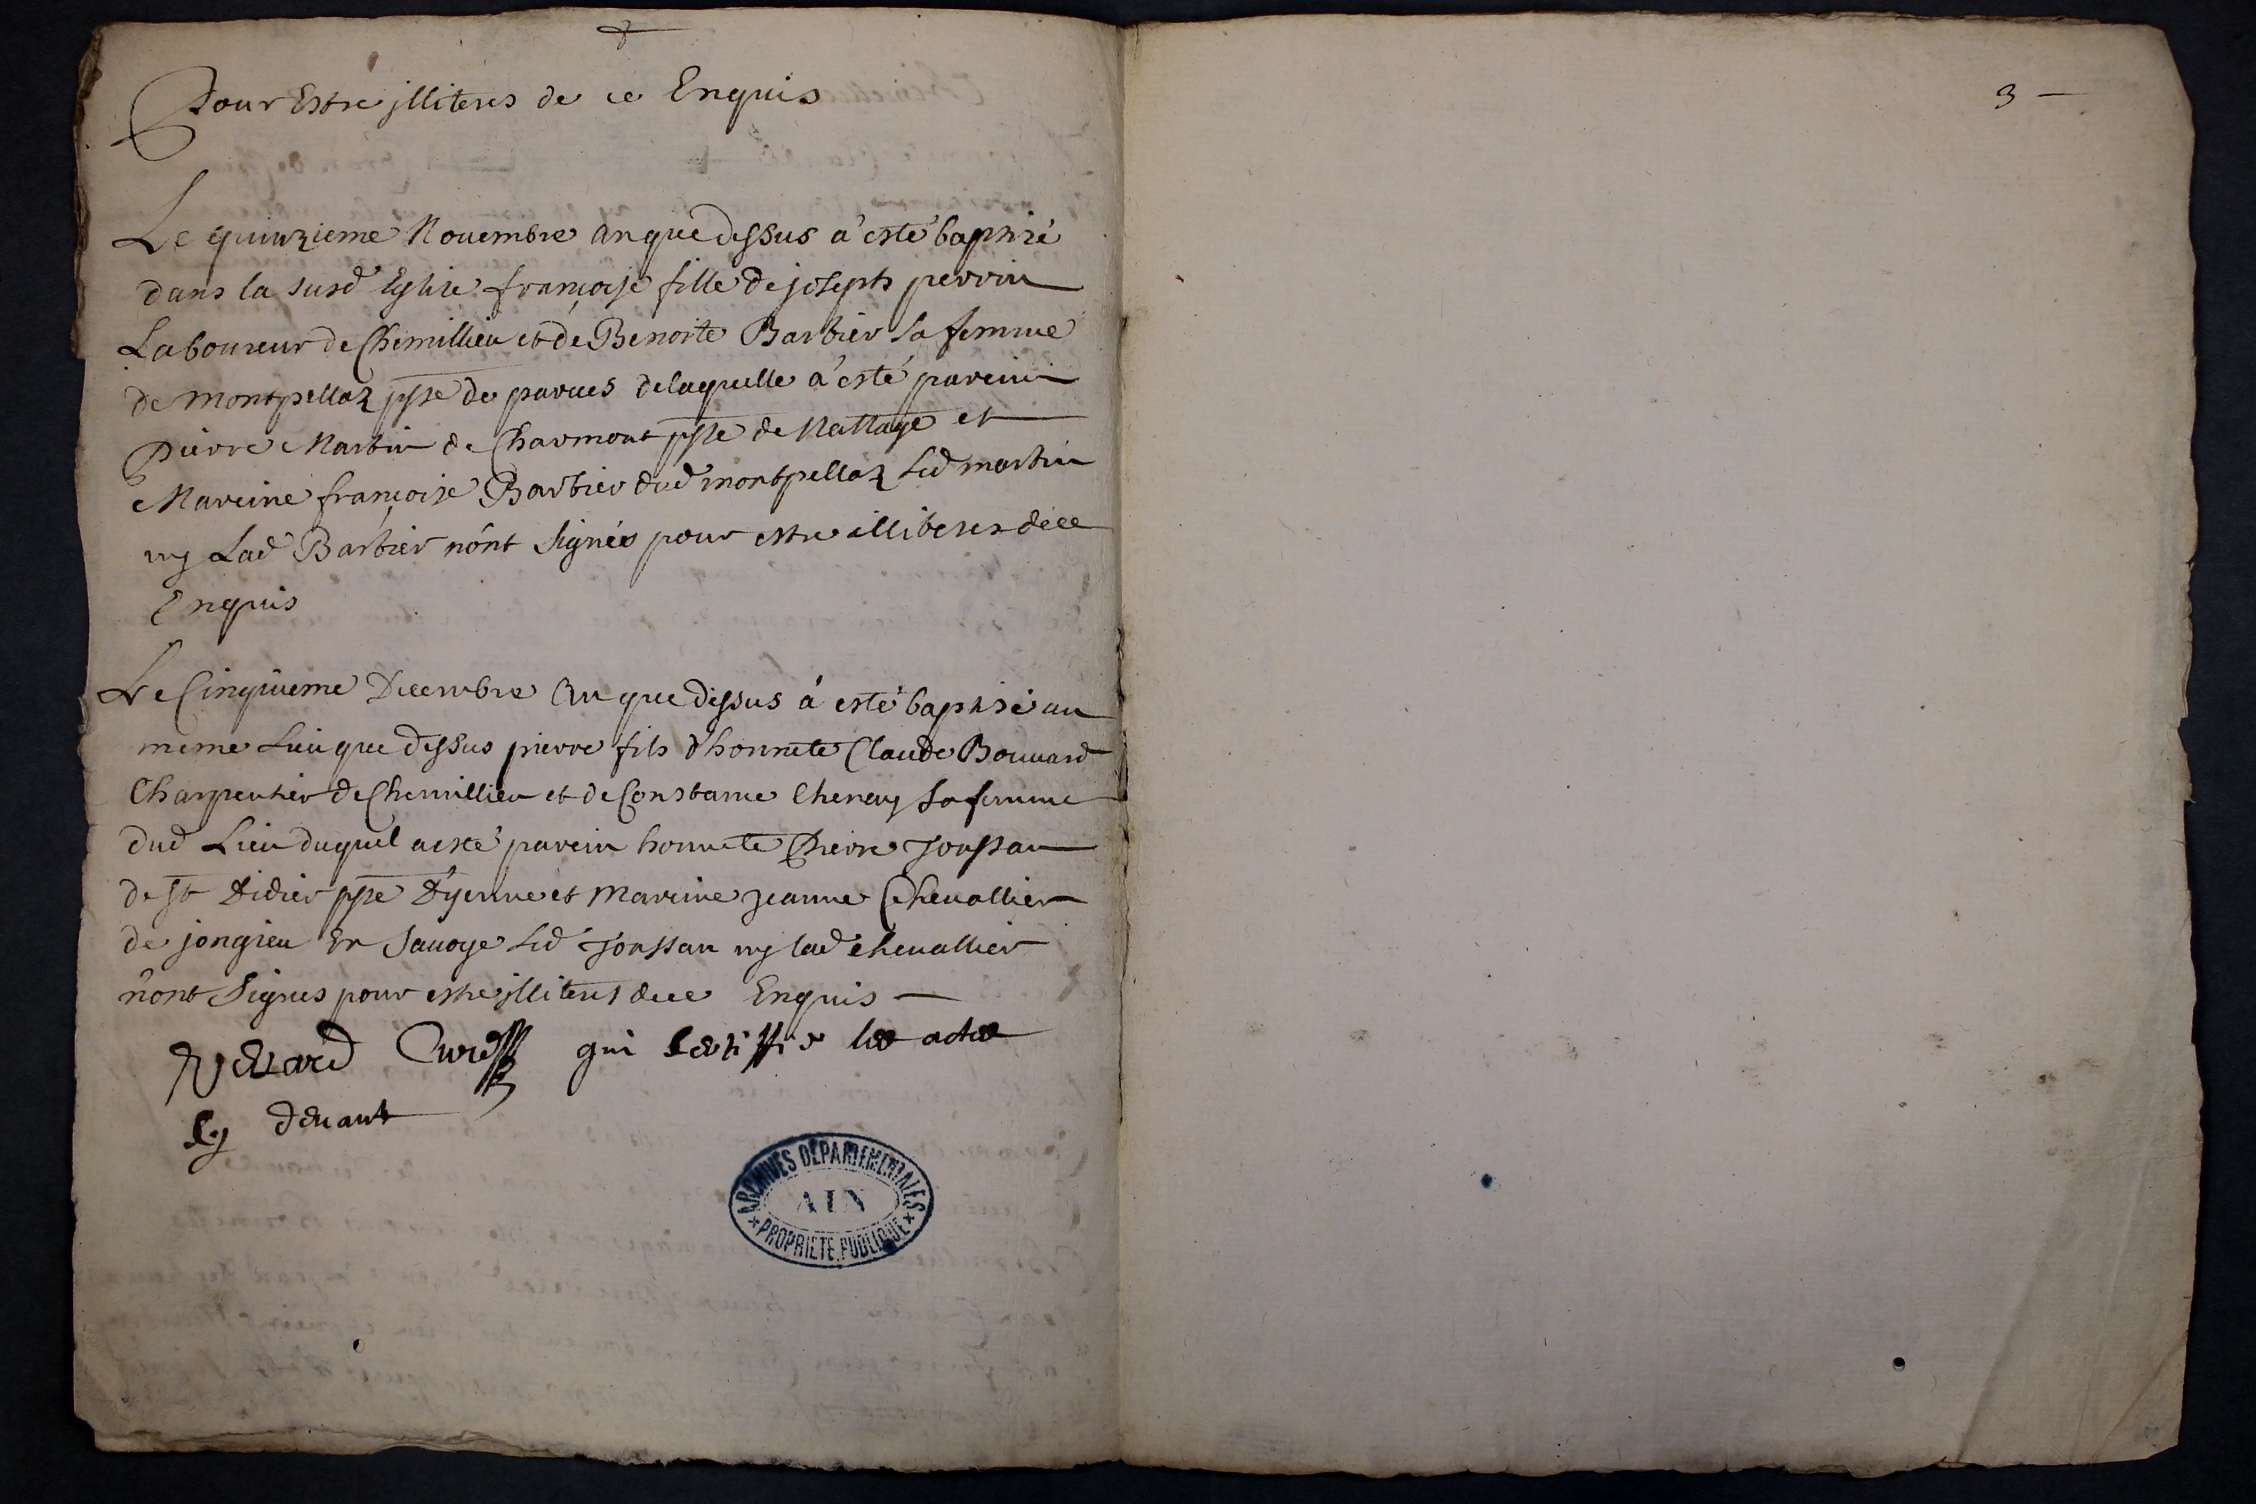 Pour Estre illiteres de ce Enquis
Le quinzieme Nouembre an que dessus a esté baptizé
dans la susd Eglize françoise fille de joseph perrin
Laboureur de Chemillieu et de Benoite Barbier sa femme
de montpellaz psse de parues delaquelle a esté parein
Pierre Martin de Charmont psse de Nattage et
Mareine françoise Barbier dud montpellaz Led martin
ny Lad Barbier nont signés pour estre illiteres dece
Enquis
Le Cinquieme Decembre an que dessus a esté baptisé au
meme Lieu que dessus pierre fils d'honnete Claude Bouuard
Charpentier de Chemillieu et de Constance Chenay sa femme
dud Lieu duquel a esté parein honnete Pierre Joussan
de St Didier psse Dyenne et Mareine jeanne Cheuallier
de jongieu En Sauoye Led Joussan ny lad cheuallier
nont Signés pour estre illiteres dece Enquis
Curé qui certiffie les actes
cy deuant
ARCHIVES DÉPARTEMENTALES
AIN
PROPRIÉTÉ PUBLIQUE
3